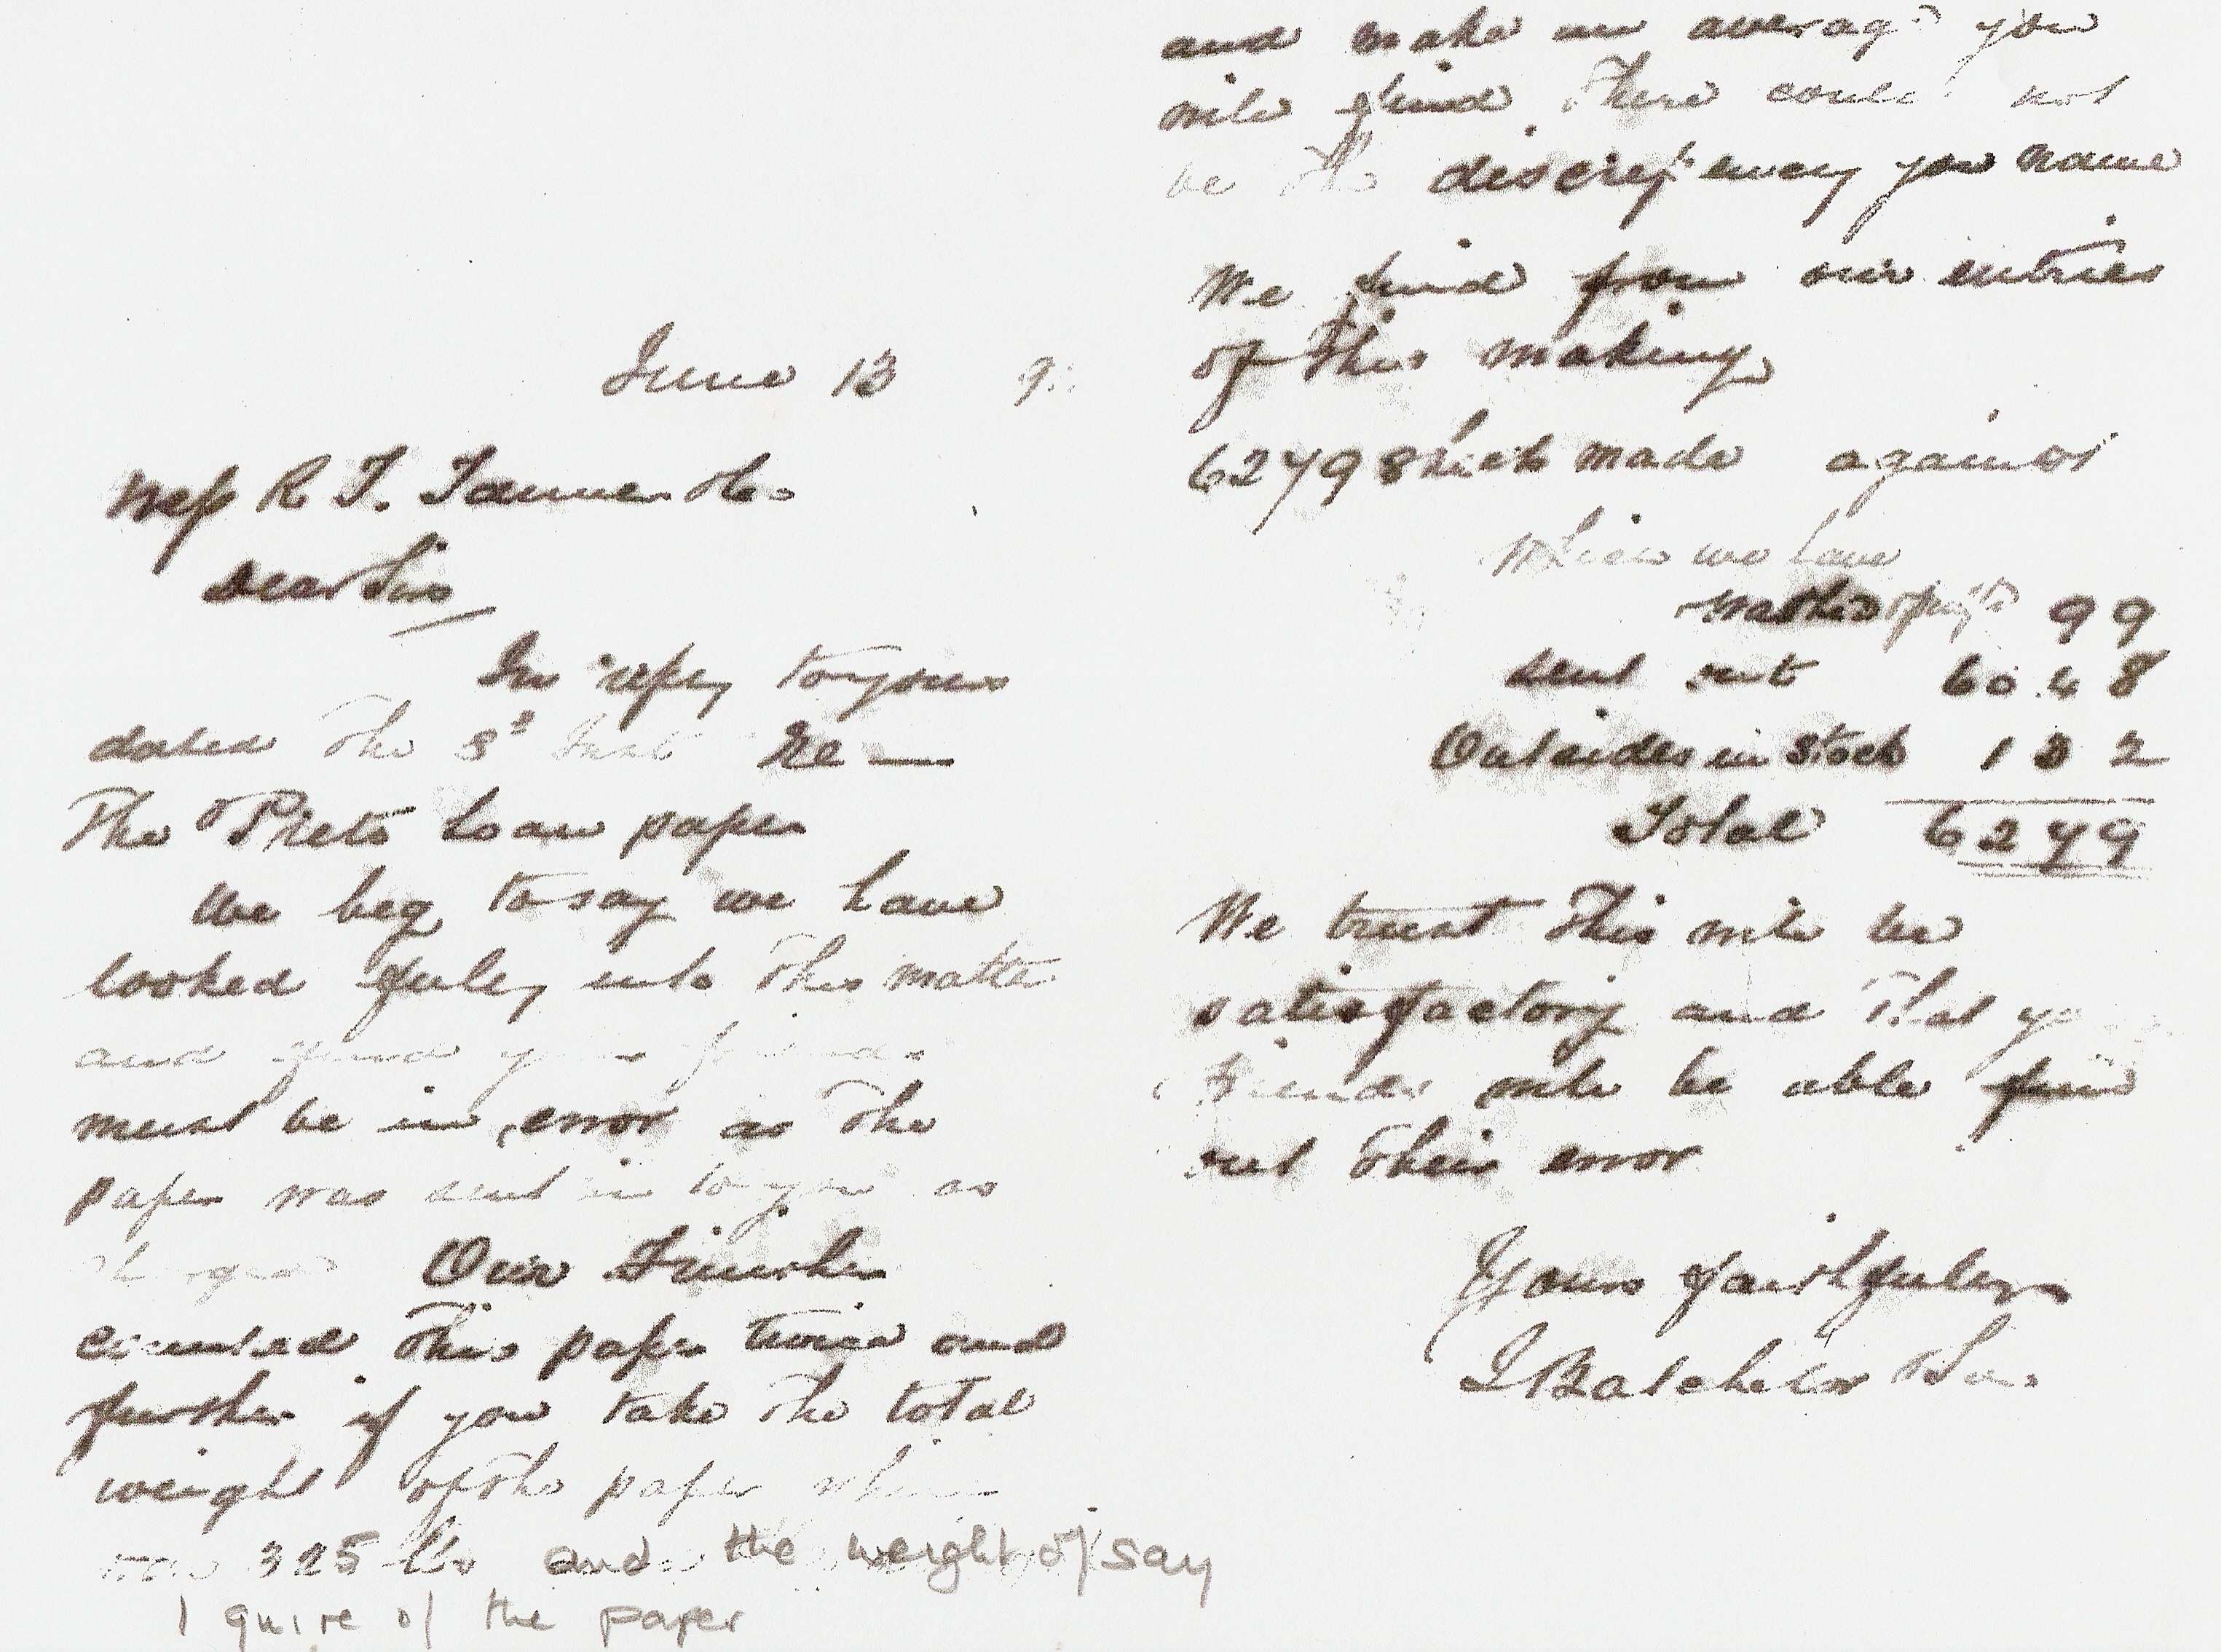 June 13 9
Mess R T. Tanner & Co
Dear Sirs
In reply to yours
dated the 3d Inst Re —
The Preto Loan paper
We beg to say we have
looked fully into this matter
and find your friends
must be in error as the
paper was sent in to you as
charged Our Finisher
counted this paper twice and
further if you take the total
weight of the paper which
was 325 lbs and the weight of say
1 quire of the paper
and make an average you
will find there could not
be the discrepency you name
We find from our entries
of this making
6279 Shets made against
which we have
99
sent out 6048
Outsides in Stock 132
Total 6279
We trust this will be
satisfactory and that your
friends will be able find
out their error
Yours faithfully
J Batchelor & Son